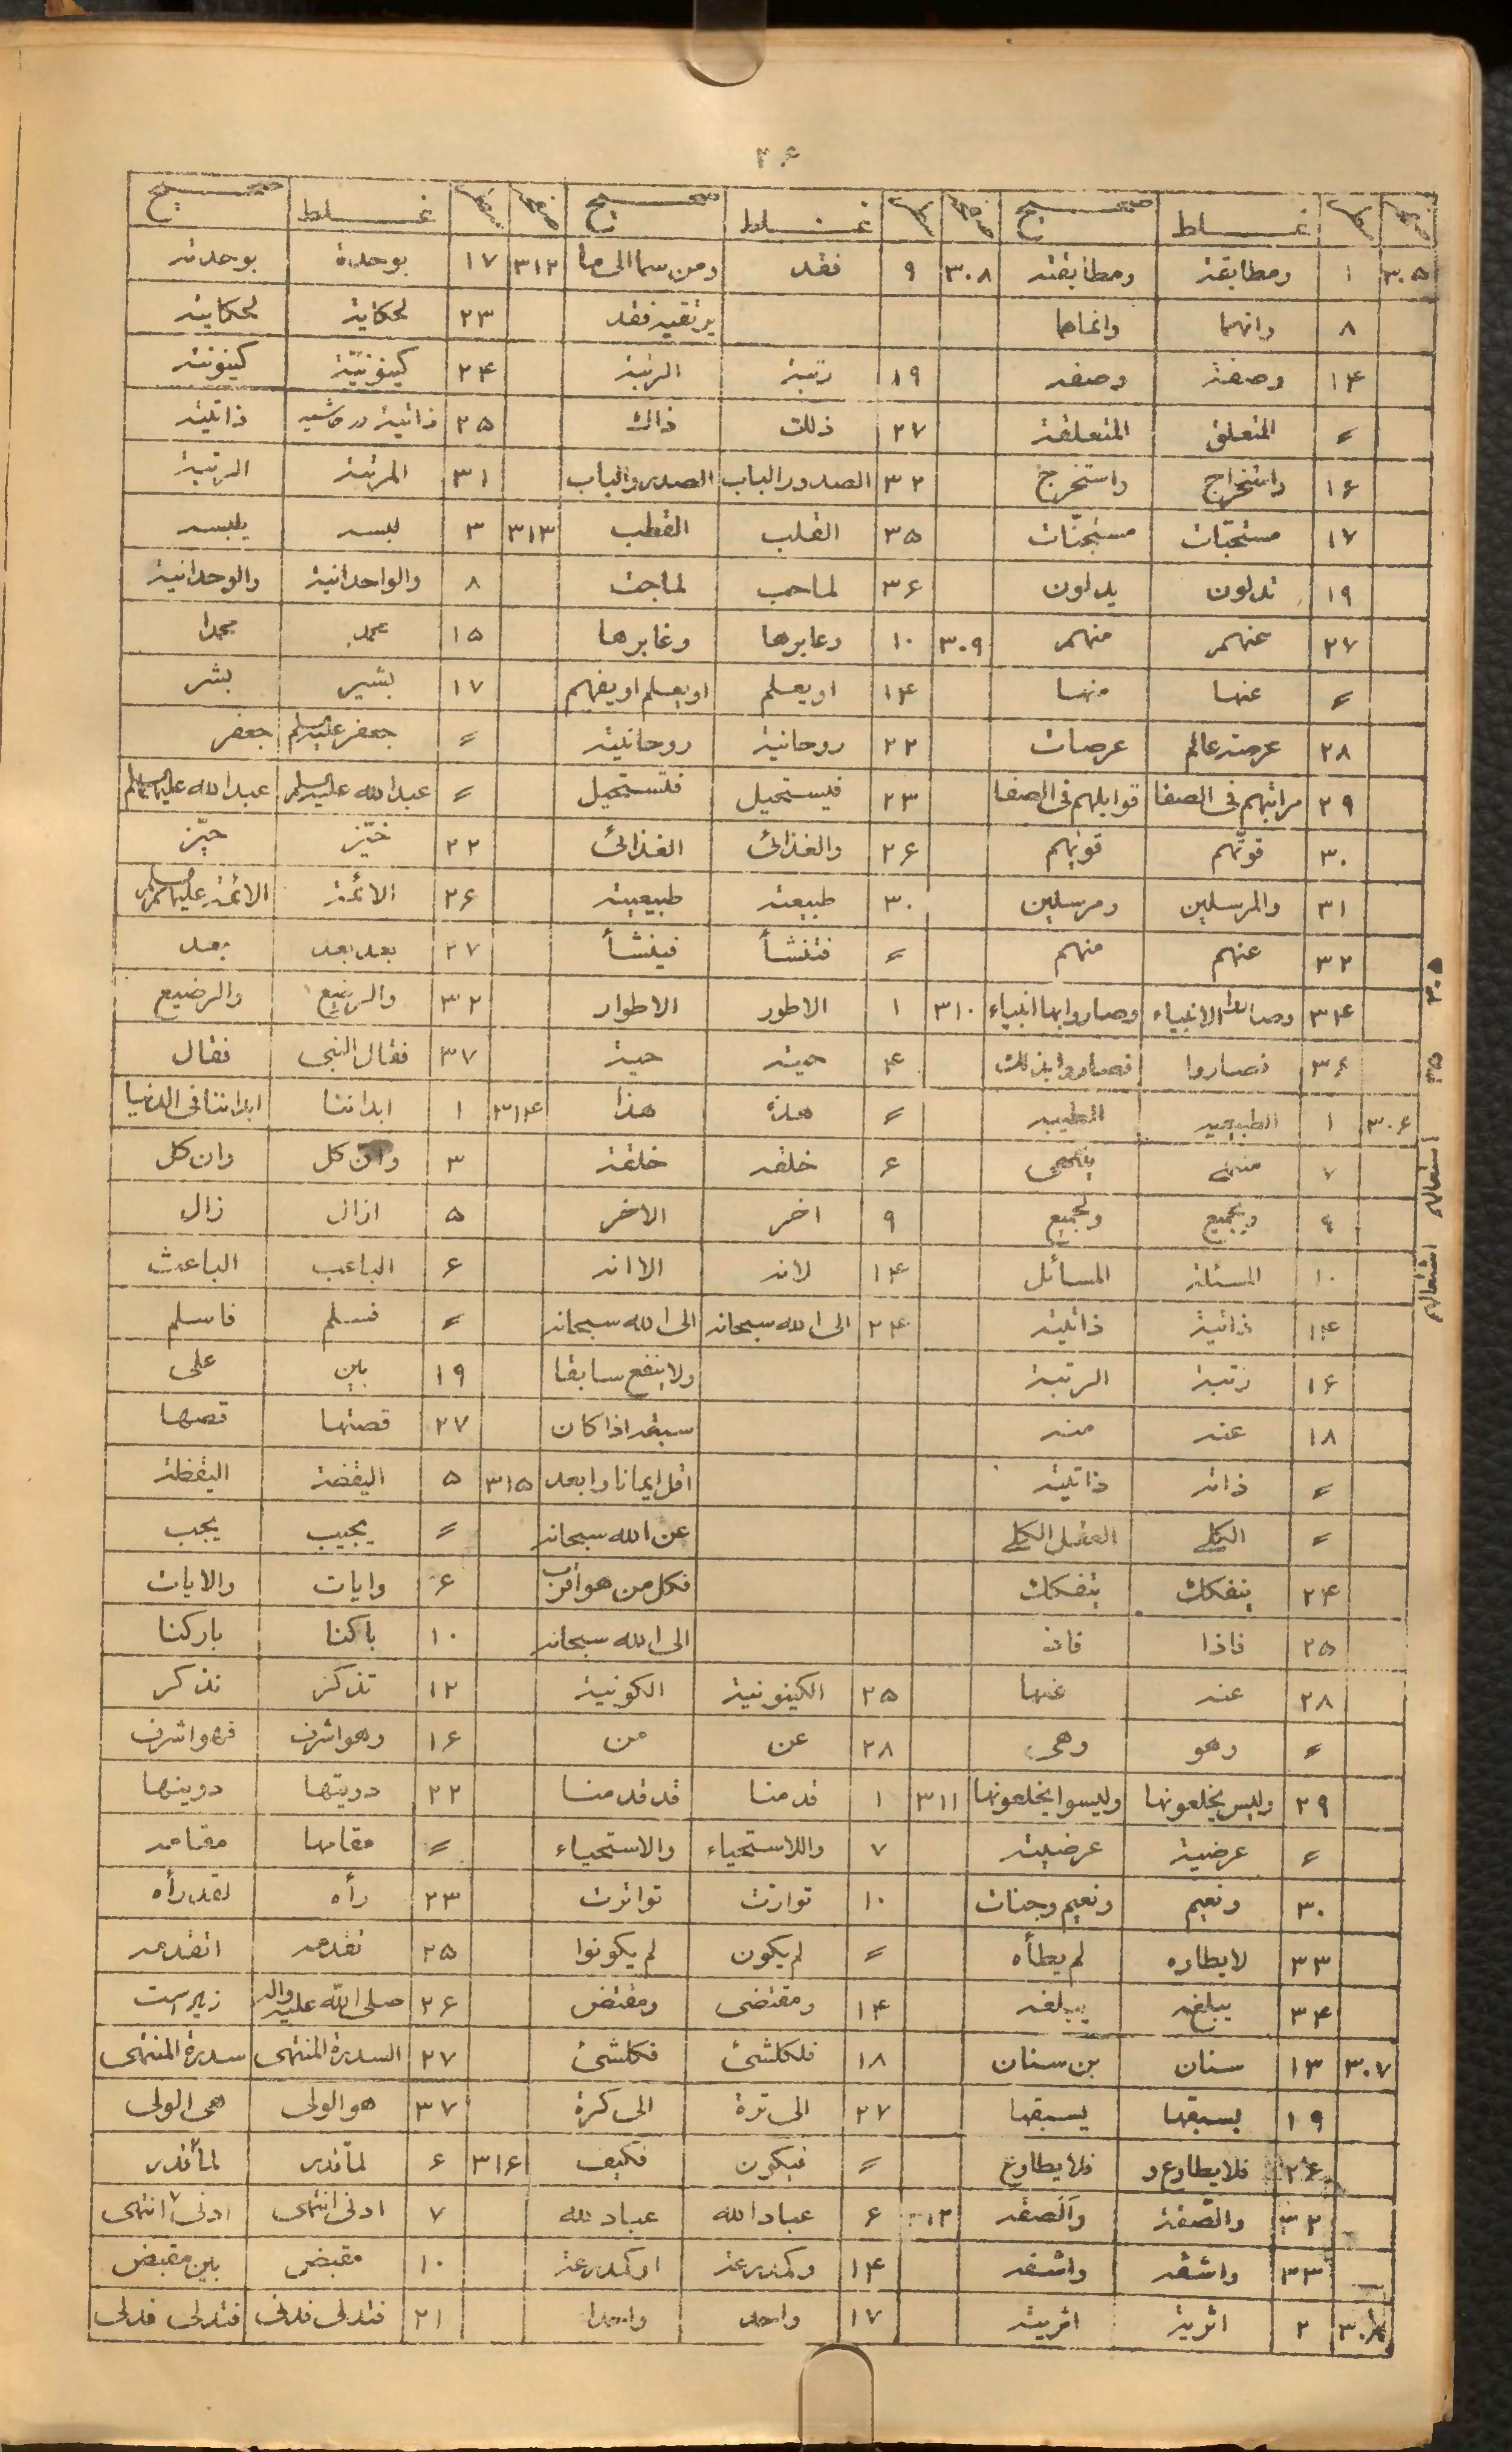 ٢۶
صفحه سطر غلط صحيح صفحه سطر غلط صحيح صفحه سطر غلط صحيح
٣٠۵ ١ ومطابقة ومطابقته ٣٠٨ ٩ فقد ومن سما الى ما ٣١٢ ١٧ بوحدة بوحدته
٨ وانهما وانماهما يرتقيه فقد ٢٣ لحكاية لحكايته
١۴ وصفة وصفه ١٩ رتبة الرتبة ٢۴ كينونيّة كينونته
〃 المتعلق المتعلقة ٢٧ ذلك ذاك ٢۵ ذاتية در حاشيه ذاتيته
١۶ واستخراج واستخرج ٣٢ الصدور الباب الصدر والباب ٣١ المرتبة الرتبة
١٧ مستحبّات مستجنّات ٣۵ القلب القطب ٣١٣ ٣ لبسه يلبسه
١٩ تدلون يدلون ٣۶ لماحب لماجت ٨ والواحدانية والوحدانية
٢٧ عنهم منهم ٣٠٩ ١٠ وعابرها وغابرها ١۵ محمد محمدا
〃 عنها منها ١۴ او يعلم او يعلم او يفهم ١٧ بشير بشر
٢٨ عرصة عالم عرصات ٢٢ روحانية روحانيته 〃 جعفر عليه السلم جعفر
٢٩ مراتبهم فى الصفا قوابلهم فى الصفا ٢٣ فيستحيل فتستحيل 〃 عبدالله عليه السلم عبدالله عليهما السلم
٣٠ قوتهم قوتهم ٢۶ والغذائى الغذائى ٢٢ خيّز حيّز
٣١ والمرسلين ومرسلين ٣٠ طبيعته طبيعيته ٢۶ الائمة الائمة عليهم السلم
٣٢ عنهم منهم 〃 فتنشأ فينشأ ٢٧ بعد بعد بعد
٣۴ الاغبياء وصاروا بها انبياء ٣١٠ ١ الاطور الاطوار ٣٢ والرضيع والرضيع
٣۶ فصاروا فصاروا بذلك ۴ حيثه حية ٣٧ فقال النبى فقال
٣٠۶ ١ الطبيعية الطيبه 〃 هذه هذا ٣١۴ ١ ابداننا ابداننا فى الدنيا
٧ ۶ خلقه خلقة ٣ وان كل وان كل
٩ وبجميع ولجميع ٩ اخر الاخر ۵ ازال زال
١٠ المسئلة المسائل ١۴ لانه الا انه ۶ الباعب الباعث
١۴ ذاتية ذاتيته ٢۴ الى الله سبحانه الى الله سبحانه 〃 فسلم فاسلم
١۶ رتبة الرتبة ولا ينفع سابقا ١٩ بين على
١٨ عنه منه سبقه اذا كان ٢٧ قصتها قصها
〃 ذاته ذاتيته اقل ايمانا وابعد ٣١۵ ۵ اليقضة اليقظة
〃 الكلى العقل الكلى عن الله سبحانه 〃 يجيب يجب
٢۴ ينفكك يتفكك فكل من هو اقرب ۶ وايات والايات
٢۵ فاذا فان الى الله سبحانه ١٠ باكنا باركنا
٢٨ عنه عنها ٢۵ الكينونية الكونية ١٢ تذكر نذكر
〃 وهو وهى ٢٨ عن من ١۶ وهو اشرف فهو اشرف
٢٩ وليس يخلعونها وليسوا يخلعونها ٣١١ ١ قدمنا قد قدمنا ٢٢ دويتها دوينها
〃 عرضية عرضيته ٧ واللاستحياء والاستحياء 〃 مقامها مقامه
٣٠ ونعيم ونعيم وجنات ١٠ توارت تواترت ٢٣ رأه لقد رأه
٣٣ لايطاره لم يطأه 〃 لم يكون لم يكونوا ٢۵ تقدمه اتقدمه
٣۴ يبلغه يبلغه ١۴ ومقتضى ومقتض ٢۶ صلى الله عليه واله زير است
٣٠٧ ١٣ سنان بن سنان ١٨ فلكلشئ فكلشئ ٢٧ السدرة المنتهى سدرة المنتهى
١٩ يسبقها يسبقها ٢٧ الى ترة الى كرة ٣٧ هو الولى هى الولى
٢۶ فلا يطاوع و فلا يطاوع 〃 فيكون فكيف ٣١۶ ۶ لمّا قدر لما قدر
٣٢ والصفة والصفه ۶ عبادالله عباد لله ٧ ادنى انتهى ادنى انتهى
٣٣ واشقه واشقه ١۴ وكمدرعة او كمدرعة ١٠ مقبض بين مقبض
٣٠٨ ٢ اثرية اثريته ١٧ واحد واحدا ٢١ فتدلى فدنى فتدلى فدلى
٣٠۵
٣۵
استعمالهم
اشتعالهم